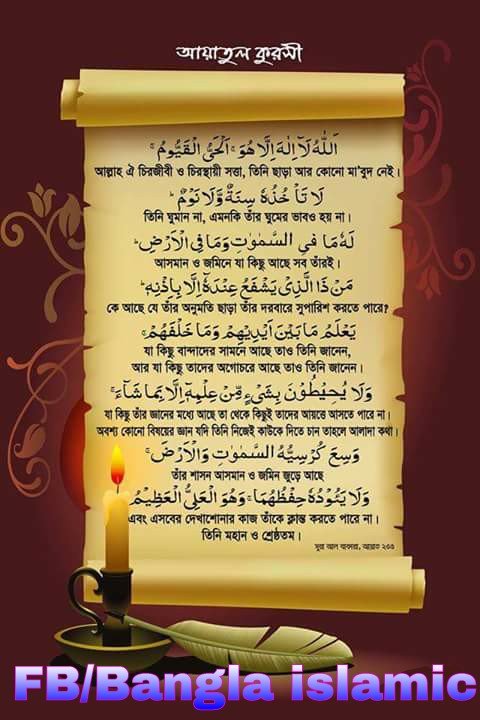 আয়াতুল কুরসী
اَللّٰهُ لَآ اِلٰهَ اِلَّا هُوَ ۚ اَلْحَىُّ الْقَيُّوْمُ ۚ
আল্লাহ ঐ চিরজীবী ও চিরস্থায়ী সত্তা, তিনি ছাড়া আর কোনো মা'বুদ নেই।
لَا تَاْ خُذُهٗ سِنَةٌ وَّلَا نَوْمٌ ؕ
তিনি ঘুমান না, এমনকি তাঁর ঘুমের ভাবও হয় না।
لَهٗ مَا فِي السَّمٰوٰتِ وَمَا فِى الْاَرْضِ ؕ
আসমান ও জমিনে যা কিছু আছে সব তাঁরই।
مَنْ ذَا الَّذِىْ يَشْفَعُ عِنْدَهٗٓ اِلَّا بِاِذْنِهٖ ؕ
কে আছে যে তাঁর অনুমতি ছাড়া তাঁর দরবারে সুপারিশ করতে পারে?
يَعْلَمُ مَا بَيْنَ اَيْدِيْهِمْ وَمَا خَلْفَهُمْ ۚ
যা কিছু বান্দাদের সামনে আছে তাও তিনি জানেন,
আর যা কিছু তাদের অগোচরে আছে তাও তিনি জানেন।
وَلَا يُحِيْطُوْنَ بِشَىْءٍ مِّنْ عِلْمِهٖٓ اِلَّا بِمَا شَآءَ ۚ
যা কিছু তাঁর জ্ঞানের মধ্যে আছে তা থেকে কিছুই তাদের আয়ত্তে আসতে পারে না।
অবশ্য কোনো বিষয়ের জ্ঞান যদি তিনি নিজেই কাউকে দিতে চান তাহলে আলাদা কথা।
وَسِعَ كُرْسِيُّهُ السَّمٰوٰتِ وَالْاَرْضَ ۚ
তাঁর শাসন আসমান ও জমিন জুড়ে আছে
وَلَا يَئُوْدُهٗ حِفْظُهُمَا ۚ وَهُوَ الْعَلِىُّ الْعَظِيْمُ
এবং এসবের দেখাশোনার কাজ তাঁকে ক্লান্ত করতে পারে না।
তিনি মহান ও শ্রেষ্ঠতম।
সূরা আল বাকারা, আয়াত ২৫৫
FB/Bangla islamic